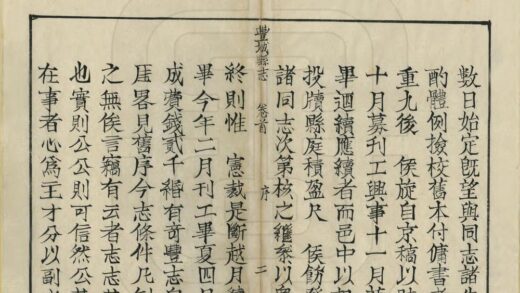 數日始定旣望與同志諸
酌體例撿校舊本付傭書
重九後 侯旋自京稿以
十月募刊工興事十一月
畢迴續應續者而邑中以
投牘縣庭積盈尺 侯飭
諸同志次第核之繼叅以
豐城縣志 卷首 序 二
終則惟 憲裁是斷越月
畢今年二月刊工畢夏四
成費錢貳千緡有奇豐志
厓畧見舊序今志條件凡
之無俟言竊有云者志志
也實則公公則可信然公
在事者心爲主才分以副